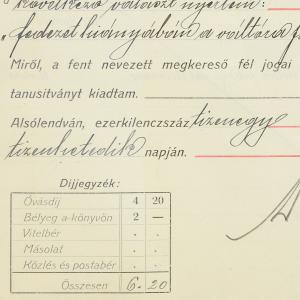 következő választ nyertem:
„fedezet hiányában a váltóra f
Miről, a fent nevezett megkereső fél jogai
tanusitványt kiadtam.
Alsólendván, ezerkilenczszáz tizenegy
tizenhetedik napján.
Díjjegyzék:
Óvásdíj 4 20
Bélyeg a könyvön 2 —
Vitelbér . .
Másolat . .
Közlés és postabér . .
Összesen 6 . 20